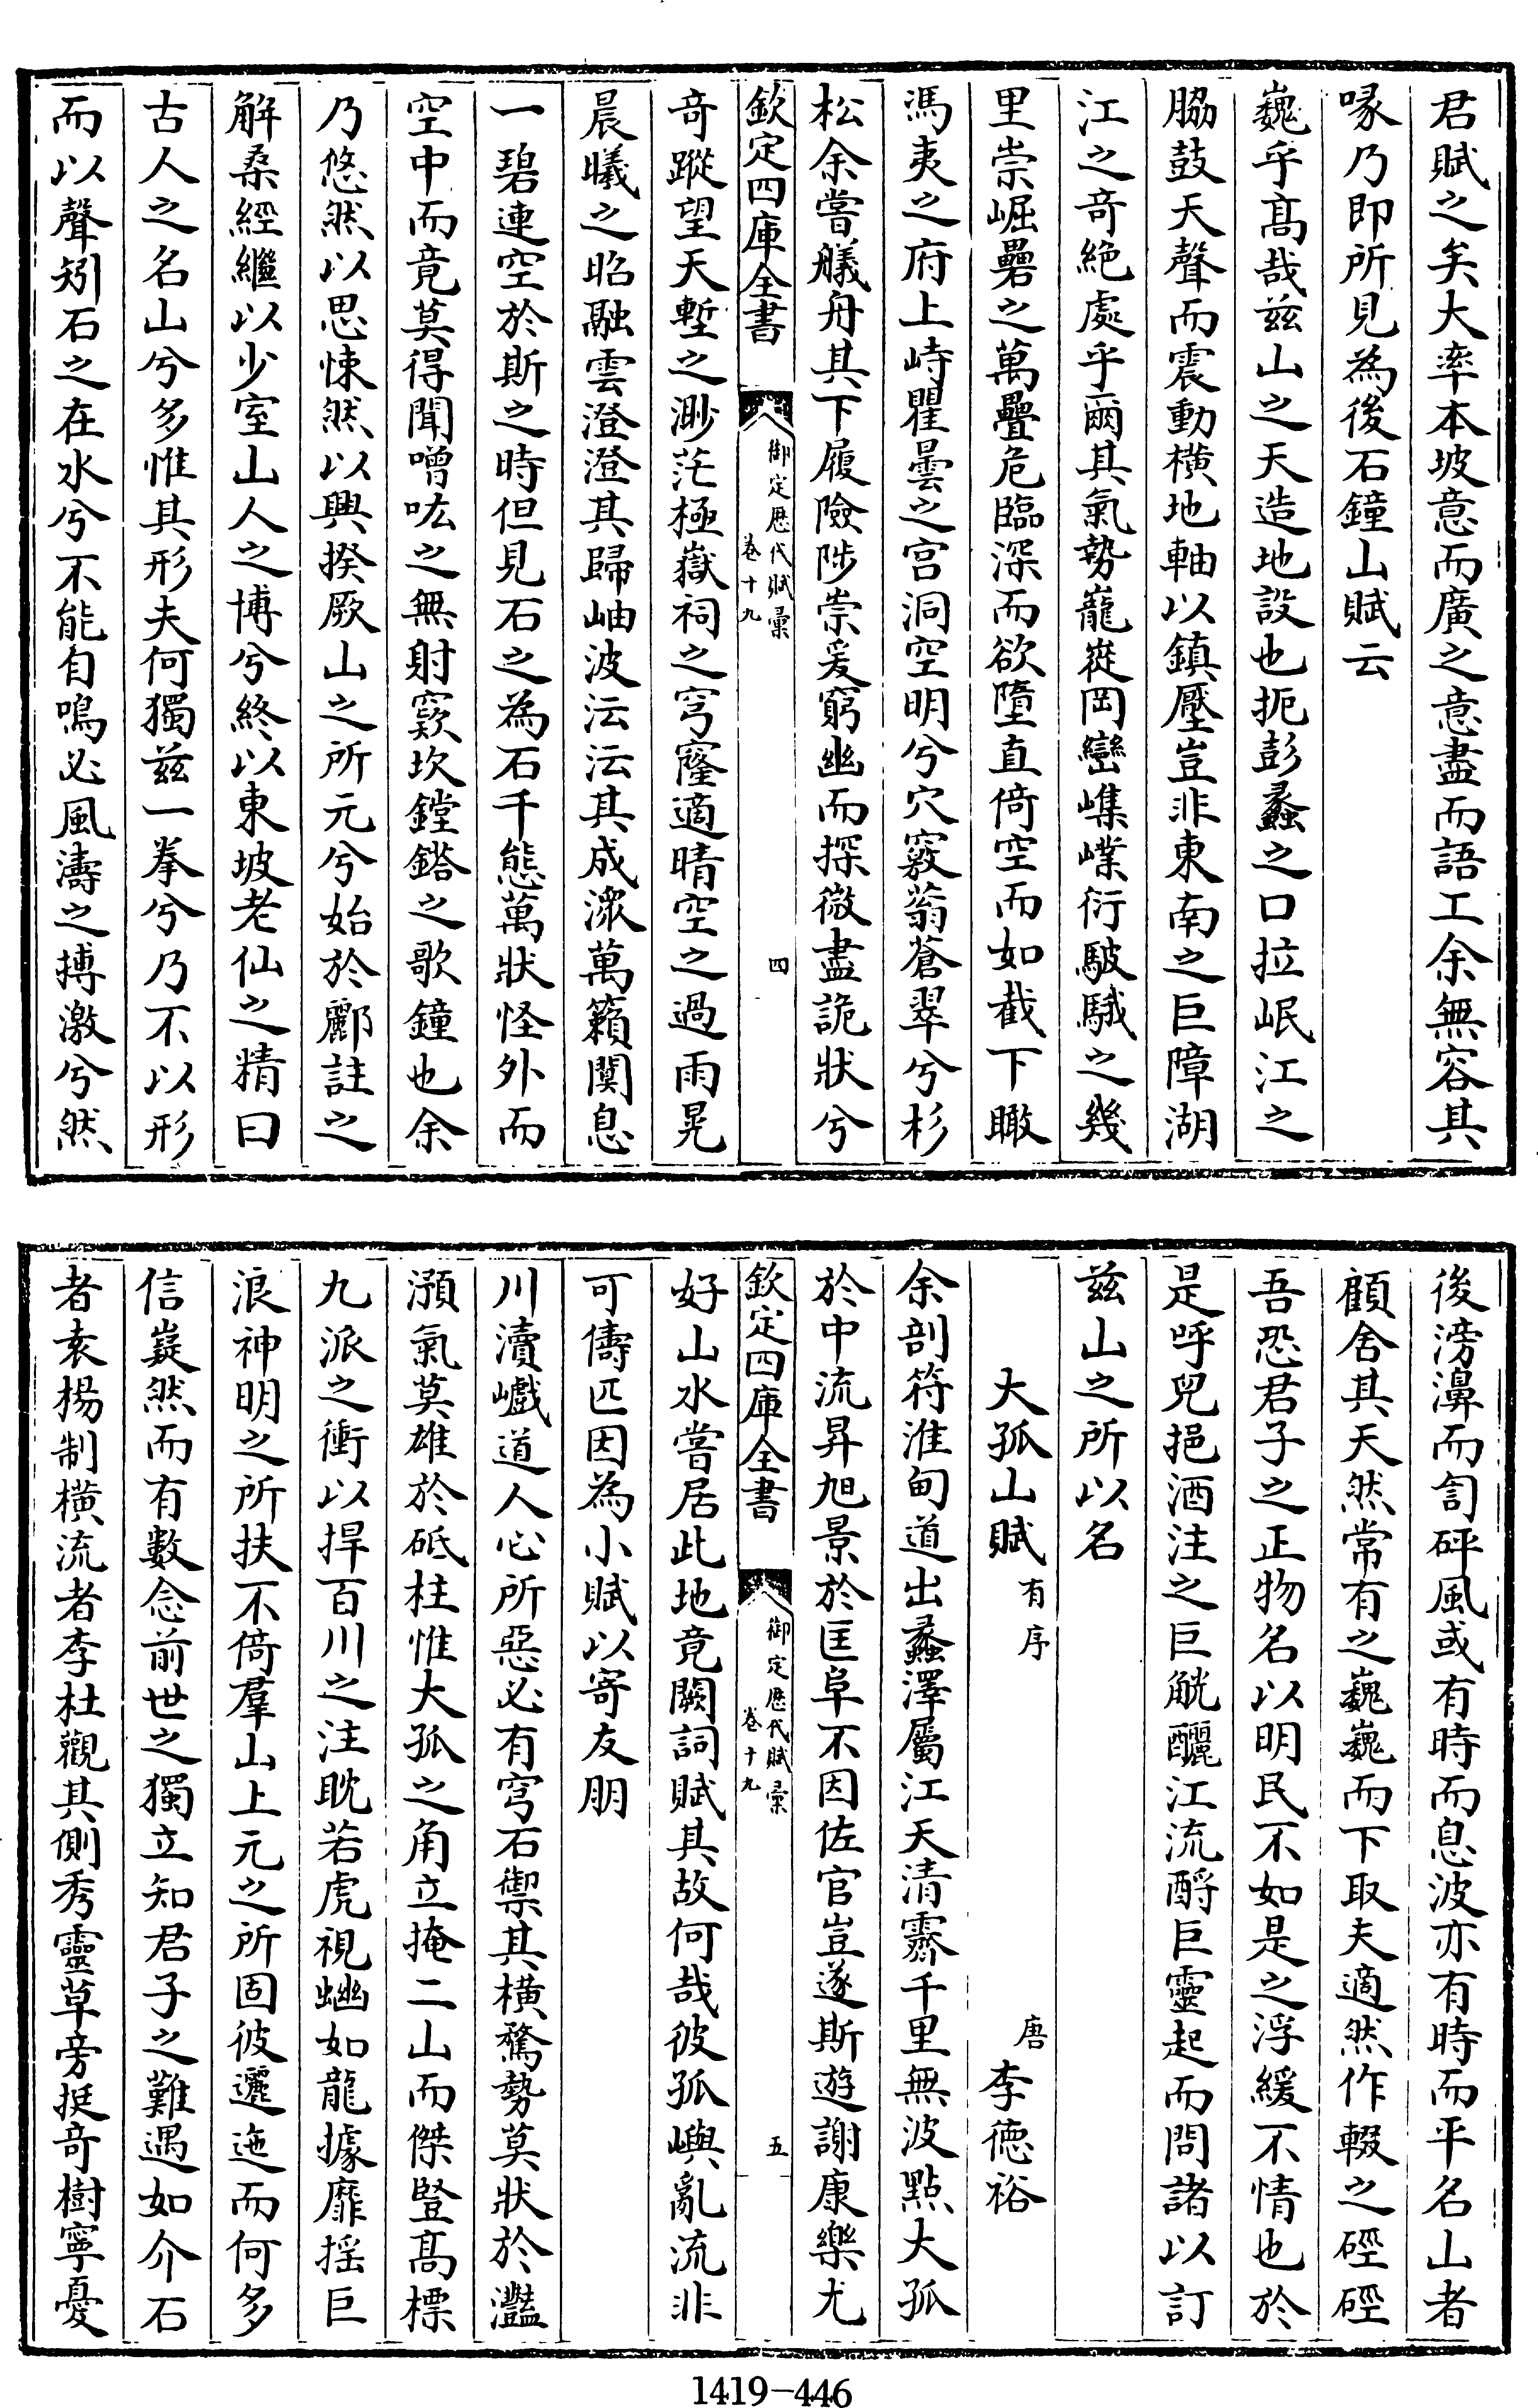 君賦之矣大率本坡意而廣之意盡而語工余無容其
喙乃即所見為後石鐘山賦云
巍乎髙哉兹山之天造地設也扼彭蠡之口拉岷江之
脇鼓天聲而震動横地軸以鎮壓豈非東南之巨障湖
江之竒絶處乎爾其氣勢巃嵸岡巒嶕嶫衍駊騀之幾
里崇崛礨之萬疊危臨深而欲墮直倚空而如截下瞰
馮夷之府上峙瞿曇之宫洞空明兮穴竅蓊蒼翠兮杉
松余嘗艤舟其下履險陟崇爰窮幽而探微盡詭狀兮
欽定四庫全書
御定歴代賦彙
卷十九
四
竒蹤望天塹之渺茫極嶽祠之穹窿適晴空之過雨晃
晨曦之昭融雲澄澄其歸岫波沄沄其成潨萬籟闃息
一碧連空於斯之時但見石之為石千態萬狀怪外而
空中而竟莫得聞噌吰之無射窾坎鏜鎝之歌鐘也余
乃悠然以思悚然以興揆厥山之所元兮始於酈註之
解桑經繼以少室山人之博兮終以東坡老仙之精曰
古人之名山兮多惟其形夫何獨兹一拳兮乃不以形
而以聲矧石之在水兮不能自鳴必風濤之搏激兮然
後滂濞而訇砰風或有時而息波亦有時而平名山者
顧舍其天然常有之巍巍而下取夫適然作輟之硜硜
吾恐君子之正物名以明民不如是之浮緩不情也於
是呼兕挹酒注之巨觥釃江流酹巨靈起而問諸以訂
兹山之所以名
大孤山賦有序 唐李德裕
余剖符淮甸道出蠡澤屬江天清霽千里無波點大孤
於中流昇旭景於匡阜不因佐官豈遂斯遊謝康樂尤
欽定四庫全書
御定歴代賦彙
卷十九
五
好山水嘗居此地竟闕詞賦其故何哉彼孤嶼亂流非
可儔匹因為小賦以寄友朋
川瀆巇道人心所惡必有穹石禦其横騖勢莫狀於灩
澦氣莫雄於砥柱惟大孤之角立掩二山而傑豎髙標
九派之衝以捍百川之注耽若虎視蚴如龍據靡揺巨
浪神明之所扶不倚羣山上元之所固彼邐迤而何多
信嶷然而有數念前世之獨立知君子之難遇如介石
者袁楊制横流者李杜觀其側秀靈草旁挺竒樹寧憂
1419-446